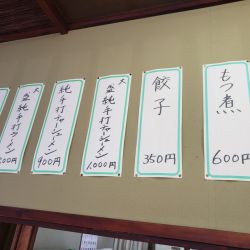 もつ煮
600円
餃子
350円
大盛純手打チャーシューメン
1,000円
純手打チャーシューメン
900円